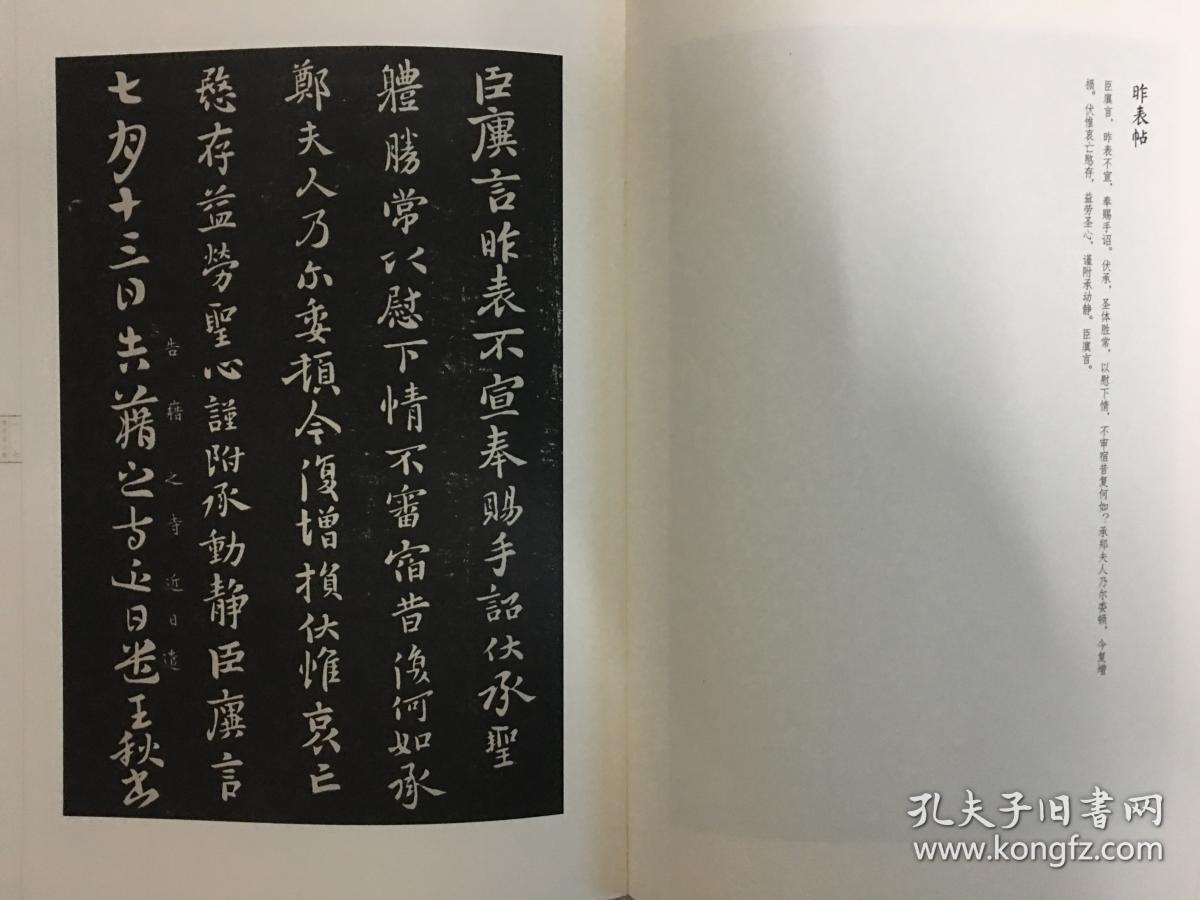 昨表帖
臣廙言，昨表不宣，奉赐手诏。伏承，圣体胜常，以慰下情，不审宿昔复何如？承郑夫人乃尔委顿，今复增
损。伏惟哀亡愍存，益劳圣心，谨附承动静。臣廙言。
臣廙言昨表不宣奉賜手詔伏承聖
體勝常以慰下情不審宿昔復何如承
鄭夫人乃尔委頓今復增損伏惟哀亡
愍存益勞聖心謹附承動静臣廙言
七月十三日告藉之寺近日遣王秋書
告藉之寺近日遣
孔夫子旧书网
www.kongfz.com